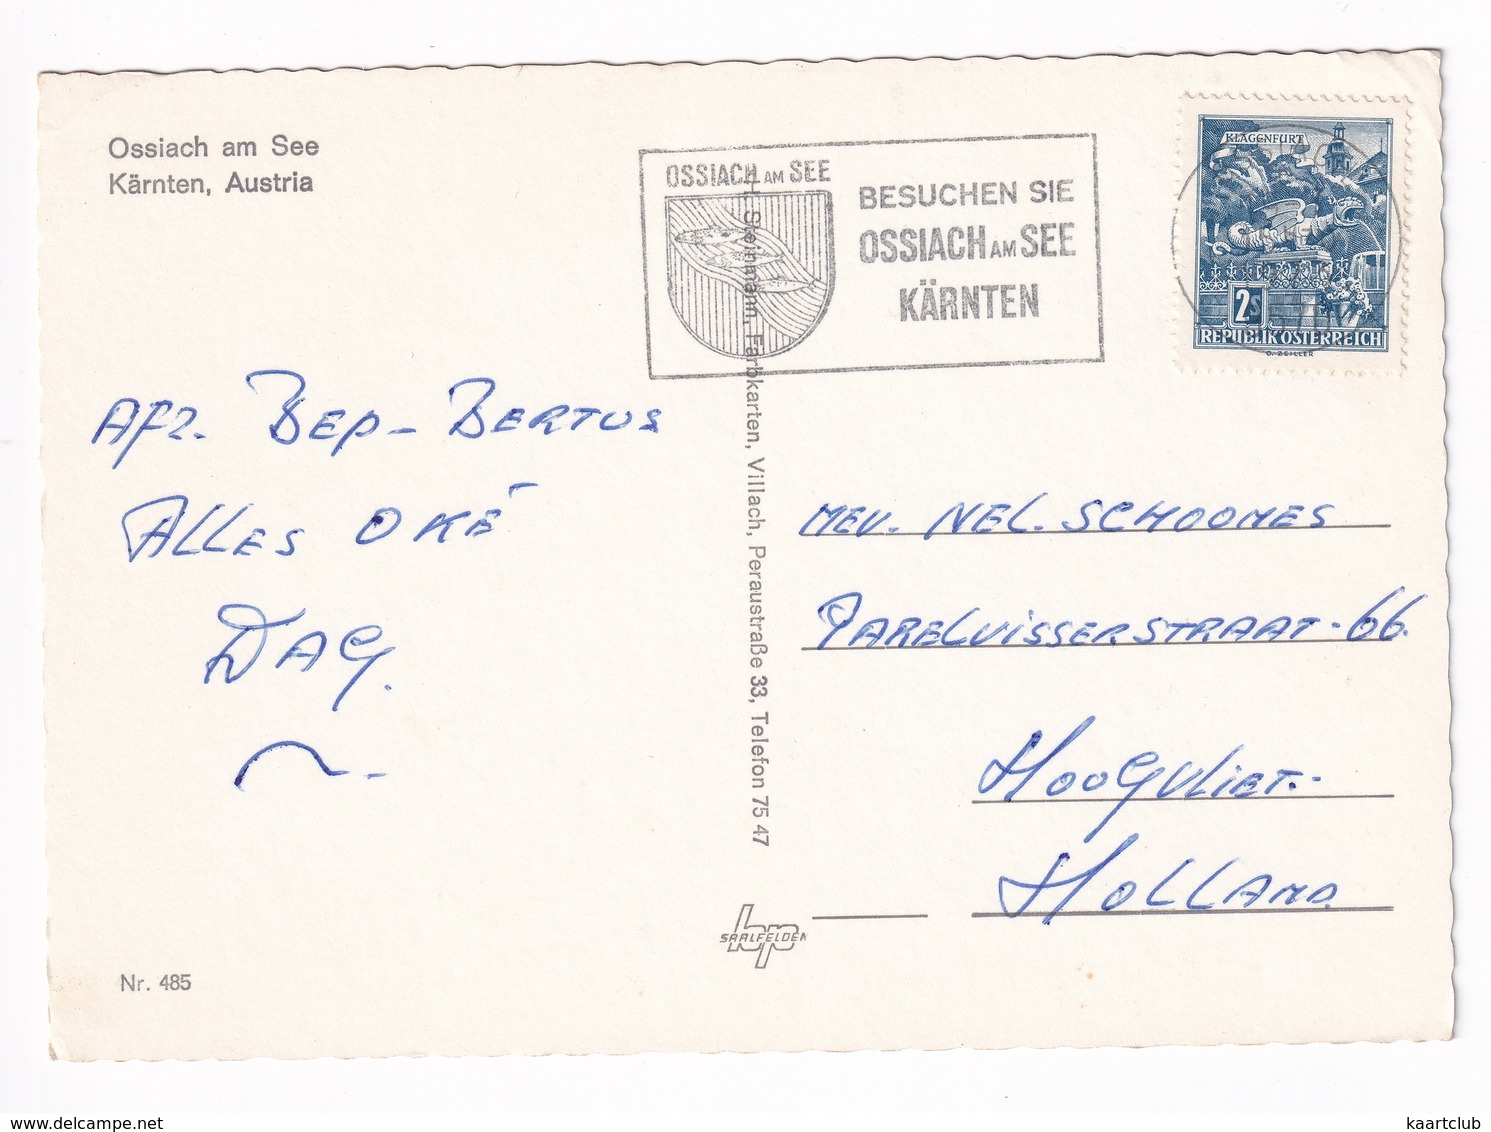 Ossiach am See
Kärnten, Austria
OSSIACH AM SEE
BESUCHEN SIE
OSSIACH AM SEE
KÄRNTEN
KLAGENFURT
2S
REPUBLIK ÖSTERREICH
O. ZEILLER
Afz. Bep - Bertus
Alles oké
Dag.
H. Steinmann, Farbkarten, Villach, Peraustraße 33, Telefon 75 47
Mev. Nel. Schoones
Parelvisserstraat - 66.
Hoogvliet.-
Holland.
SAALFELDEN
Nr. 485
www.delcampe.net
kaartclub